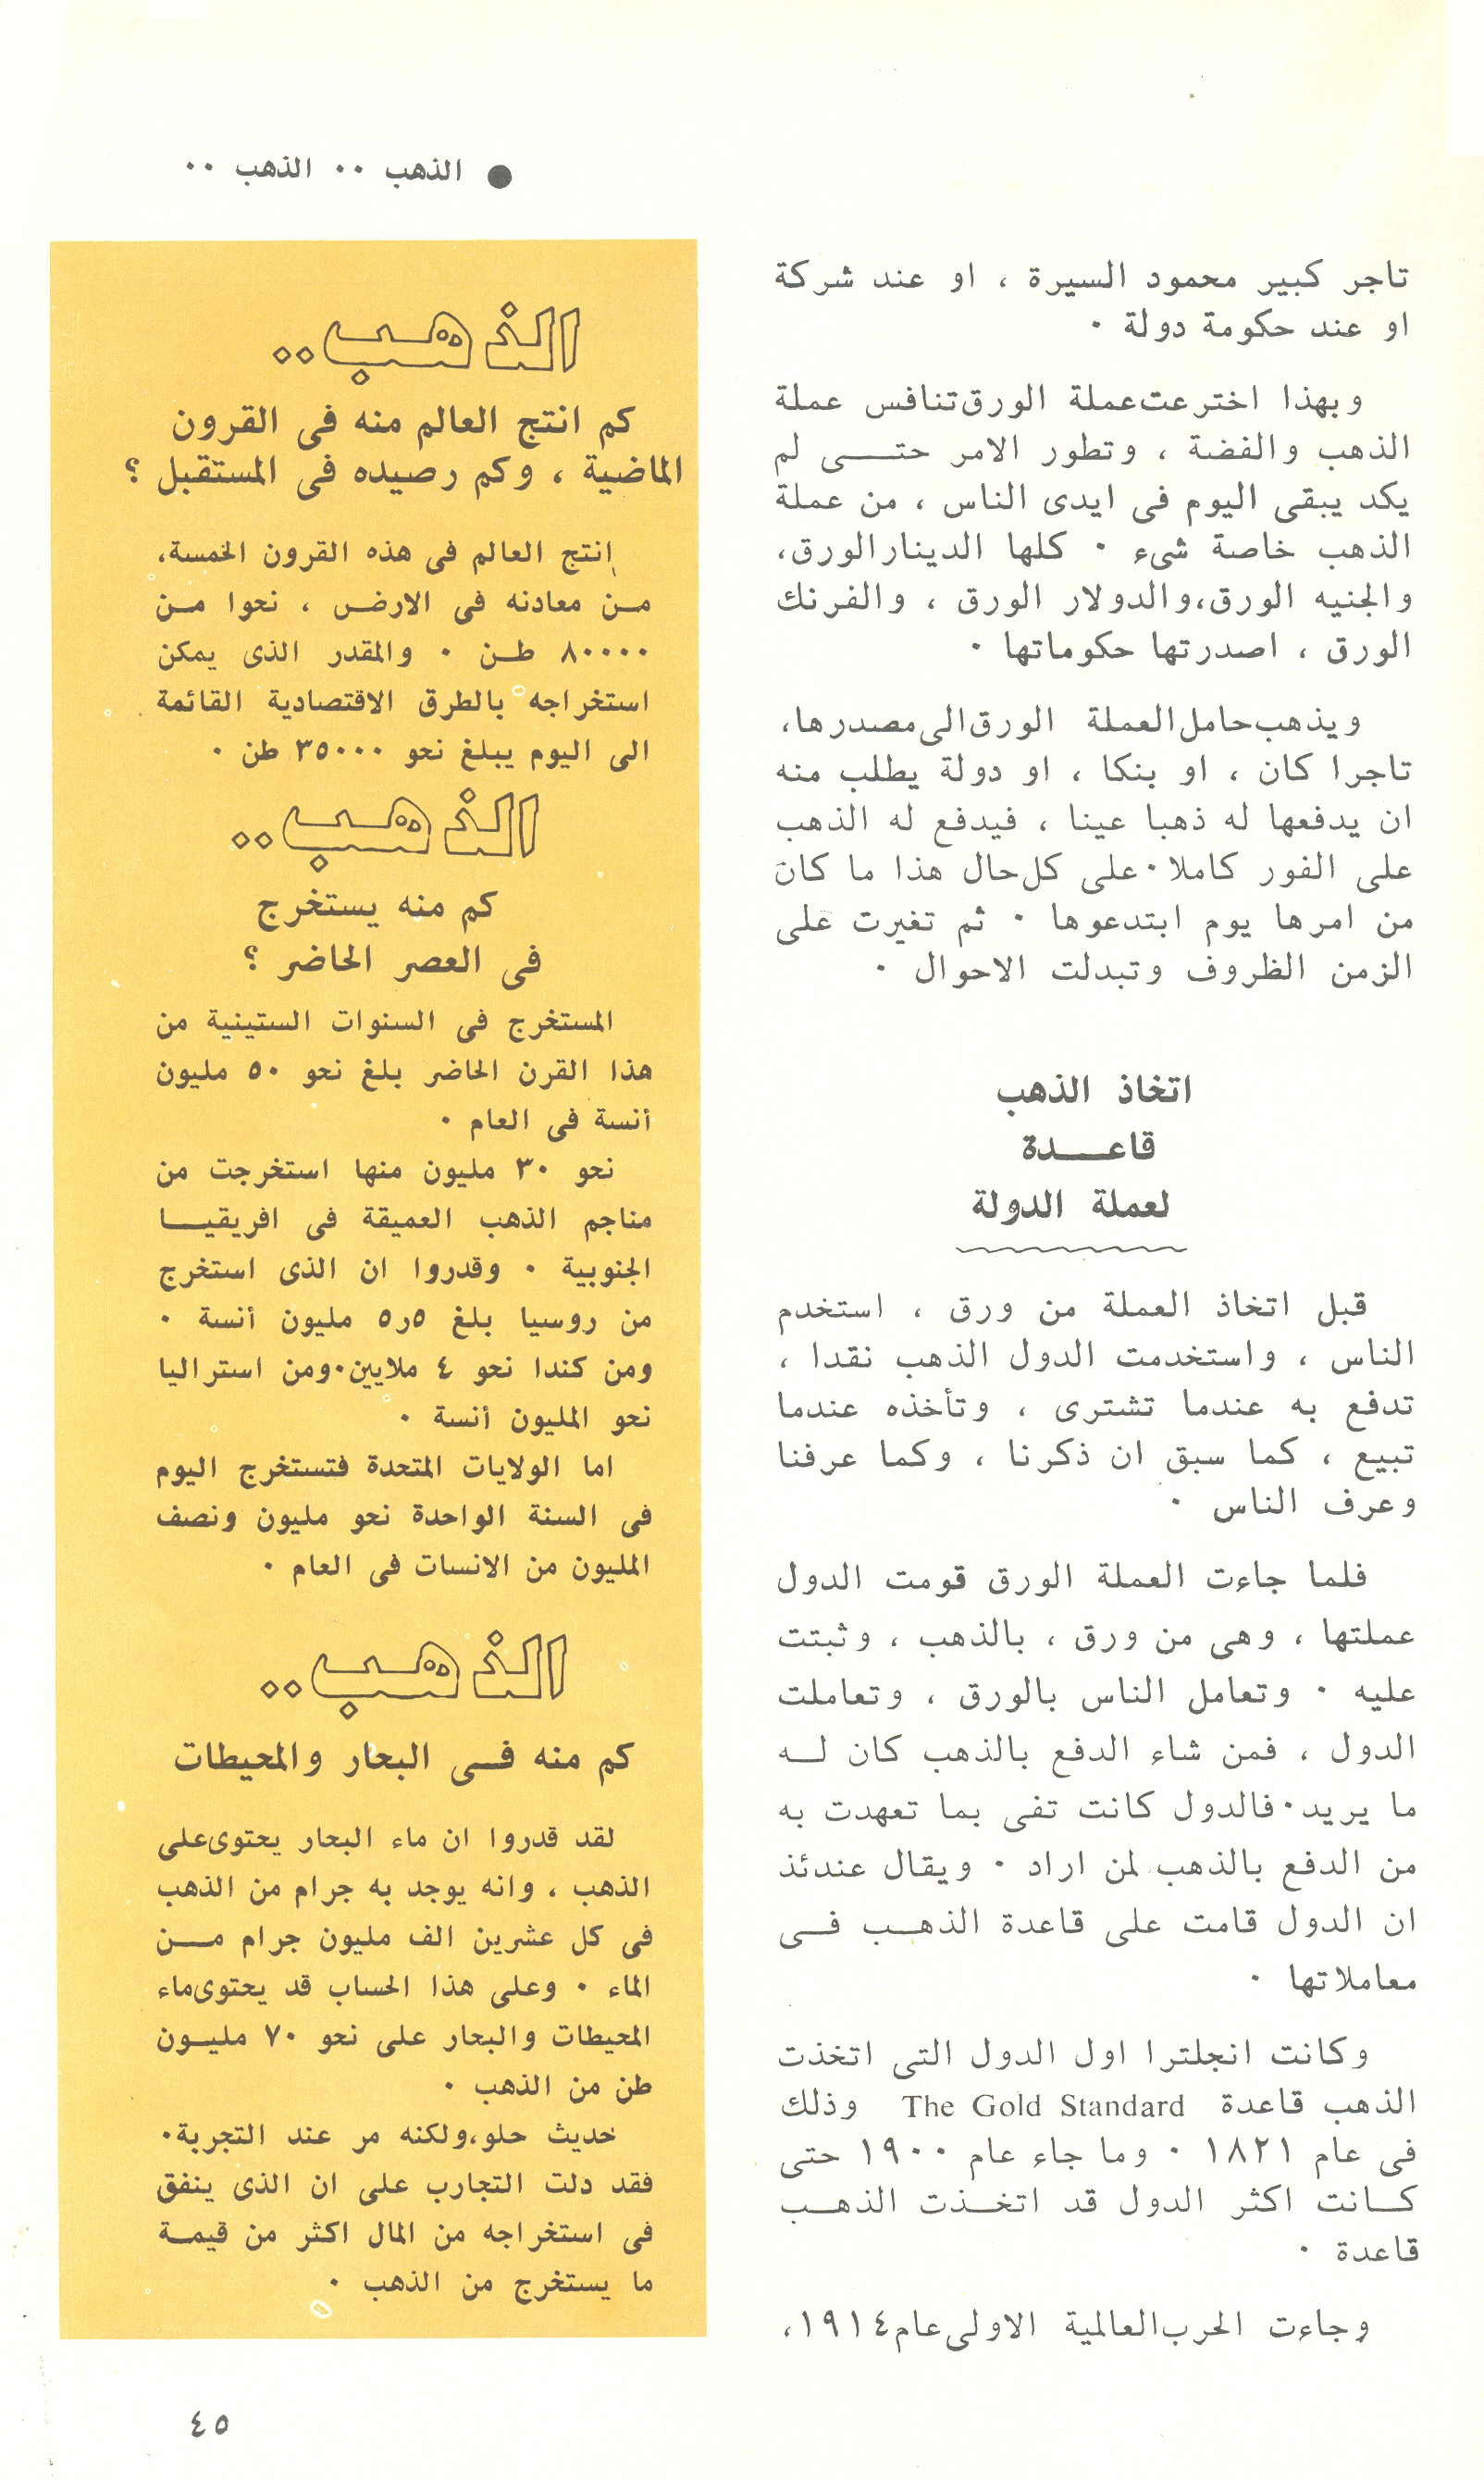 ● الذهب ٠٠ الذهب ٠٠
تاجر كبير محمود السيرة ، او عند شركة
او عند حكومة دولة ٠
وبهذا اخترعت عملة الورق تنافس عملة
الذهب والفضة ، وتطور الامر حتـــى لم
يكد يبقى اليوم فى ايدى الناس ، من عملة
الذهب خاصة شىء ٠ كلها الدينار الورق،
والجنيه الورق، والدولار الورق ، والفرنك
الورق ، اصدرتها حكوماتها ٠
ويذهب حامل العملة الورق الى مصدرها،
تاجرا كان ، او بنكا ، او دولة يطلب منه
ان يدفعها له ذهبا عينا ، فيدفع له الذهب
على الفور كاملا ٠ على كل حال هذا ما كان
من امرها يوم ابتدعوها ٠ ثم تغيرت على
الزمن الظروف وتبدلت الاحوال ٠
اتخاذ الذهب
قاعـــدة
لعملة الدولة
قبل اتخاذ العملة من ورق ، استخدم
الناس ، واستخدمت الدول الذهب نقدا ،
تدفع به عندما تشترى ، وتأخذه عندما
تبيع ، كما سبق ان ذكرنا ، وكما عرفنا
وعرف الناس ٠
فلما جاءت العملة الورق قومت الدول
عملتها ، وهى من ورق ، بالذهب ، وثبتت
عليه ٠ وتعامل الناس بالورق ، وتعاملت
الدول ، فمن شاء الدفع بالذهب كان لــه
ما يريد ٠ فالدول كانت تفى بما تعهدت به
من الدفع بالذهب لمن اراد ٠ ويقال عندئذ
ان الدول قامت على قاعدة الذهــب فــى
معاملاتها ٠
وكانت انجلترا اول الدول التى اتخذت
الذهب قاعدة The Gold Standard وذلك
فى عام ١٨٢١ ٠ وما جاء عام ١٩٠٠ حتى
كــانت اكثر الدول قد اتخــذت الذهــب
قاعدة ٠
وجاءت الحرب العالمية الاولى عام ١٩١٤،
الذهب ٠٠
كم انتج العالم منه فى القرون
الماضية ، وكم رصيده فى المستقبل ؟
إنتج العالم فى هذه القرون الخمسة،
مــن معادنه فى الارض ، نحوا مــن
٨٠٠٠٠ طــن ٠ والمقدر الذى يمكن
استخراجه بالطرق الاقتصادية القائمة
الى اليوم يبلغ نحو ٣٥٠٠٠ طن ٠
الذهب ٠٠
كم منه يستخرج
فى العصر الحاضر ؟
المستخرج فى السنوات الستينية من
هذا القرن الحاضر بلغ نحو ٥٠ مليون
أنسة فى العام ٠
نحو ٣٠ مليون منها استخرجت من
مناجم الذهب العميقة فى افريقيــا
الجنوبية ٠ وقدروا ان الذى استخرج
من روسيا بلغ ٥ر٥ مليون أنسة ٠
ومن كندا نحو ٤ ملايين ٠ ومن استراليا
نحو المليون أنسة ٠
اما الولايات المتحدة فتستخرج اليوم
فى السنة الواحدة نحو مليون ونصف
المليون من الانسات فى العام ٠
الذهب ٠٠
كم منه فــى البحار والمحيطات
لقد قدروا ان ماء البحار يحتوى على
الذهب ، وانه يوجد به جرام من الذهب
فى كل عشرين الف مليون جرام مــن
الماء ٠ وعلى هذا الحساب قد يحتوى ماء
المحيطات والبحار على نحو ٧٠ مليــون
طن من الذهب ٠
حديث حلو، ولكنه مر عند التجربة ٠
فقد دلت التجارب على ان الذى ينفق
فى استخراجه من المال اكثر من قيمــة
ما يستخرج من الذهب ٠
٤٥